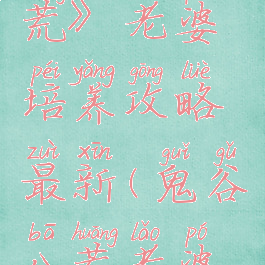 荒》 老婆
péi yǎng gōng lüè
培养攻略
zuì xīn guǐ gǔ
最新(鬼谷
bā huāng lǎo pó
八荒老婆